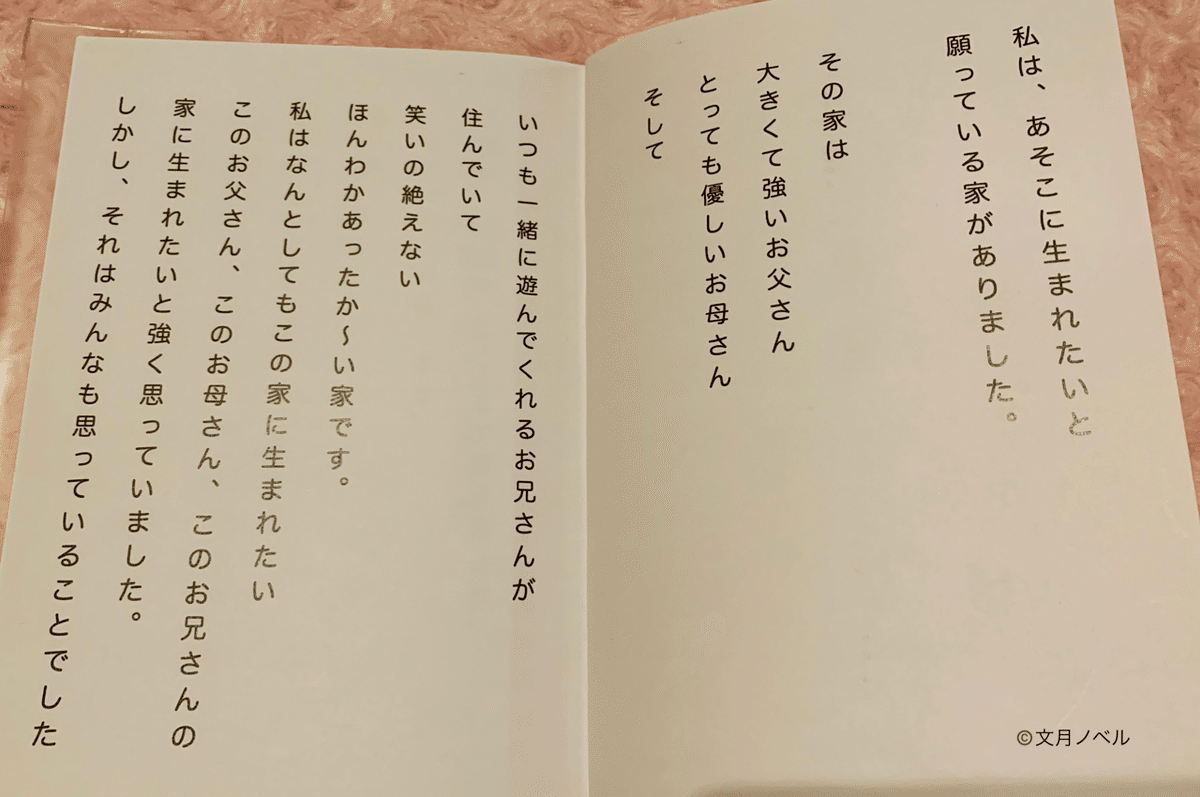 私は、あそこに生まれたいと
願っている家がありました。
その家は
大きくて強いお父さん
とっても優しいお母さん
そして
いつも一緒に遊んでくれるお兄さんが
住んでいて
笑いの絶えない
ほんわかあったか〜い家です。
私はなんとしてもこの家に生まれたい
このお父さん、このお母さん、このお兄さんの
家に生まれたいと強く思っていました。
しかし、それはみんなも思っていることでした
©文月ノベル